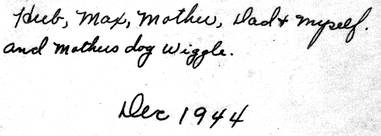 Hub, Max, Mother, Dad & myself.
and Mothers dog Wiggle.
Dec 1944